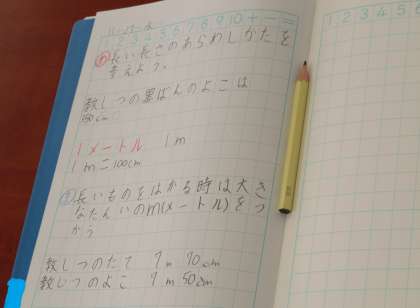 2 3 4 5 6 7 8 9 10 + - =
め 長い長さのあらわしかたを
考えよう。
教しつの黒ばんのよこは
150cm
1メートル 1m
1m=100cm
ま 長いものをはかる時は大き
なたんいのm(メートル)をつ
かう
教しつのたて 7m 70cm
教しつのよこ 7m 50cm
1 2 3 4 5 6